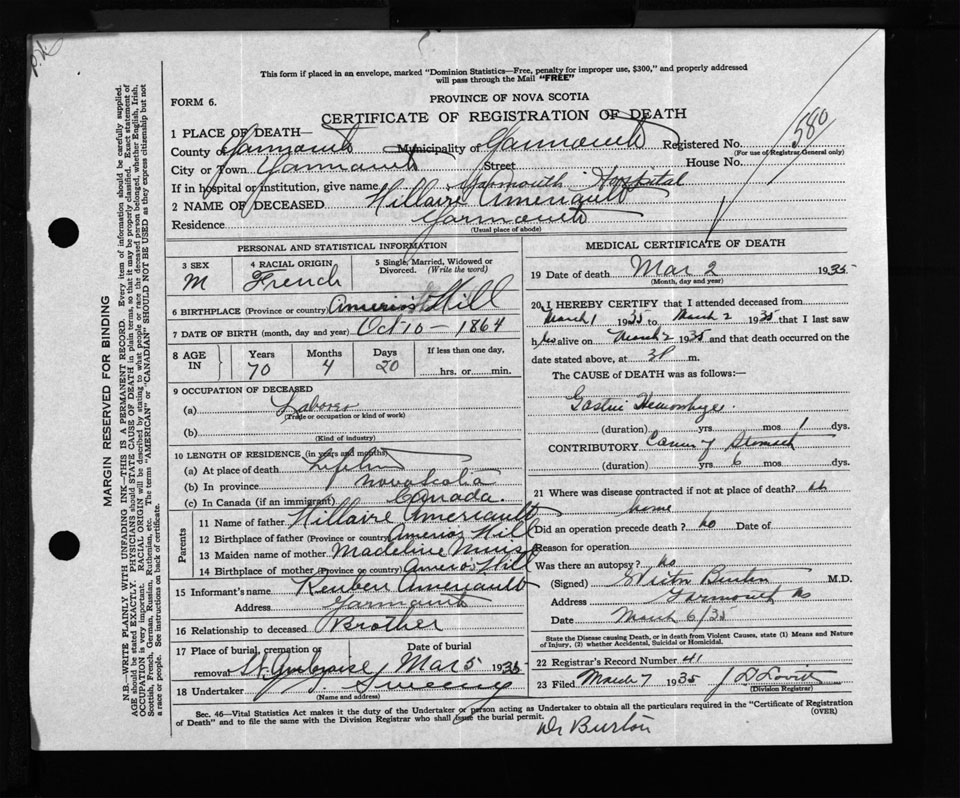 This form if placed in an envelope, marked "Dominion Statistics—Free, penalty for improper use, $300," and properly addressed
will pass through the Mail "FREE"
FORM 6.
PROVINCE OF NOVA SCOTIA
CERTIFICATE OF REGISTRATION OF DEATH
580
1 PLACE OF DEATH—
County of Yarmouth Municipality of Yarmouth Registered No.
(For use of Registrar General only)
City or Town Yarmouth Street House No.
If in hospital or institution, give name Yarmouth Hospital
2 NAME OF DECEASED Hillaire Ameriault
Residence Yarmouth
(Usual place of abode)
PERSONAL AND STATISTICAL INFORMATION
3 SEX 4 RACIAL ORIGIN 5 Single, Married, Widowed or
Divorced. (Write the word)
M French
6 BIRTHPLACE (Province or country) Amerio's Hill
7 DATE OF BIRTH (month, day and year) Oct 10 - 1864
8 AGE IN Years Months Days If less than one day,
70 4 20 hrs. or min.
9 OCCUPATION OF DECEASED
(a) Laborer
(Trade or occupation or kind of work)
(b)
(Kind of industry)
10 LENGTH OF RESIDENCE (in years and months)
(a) At place of death Lifetime
(b) In province Nova Scotia
(c) In Canada (if an immigrant) Canada.
Parents
11 Name of father Hillaire Ameriault
12 Birthplace of father (Province or country) Amerios Hill
13 Maiden name of mother Madeline Muise
14 Birthplace of mother (Province or country) Amero's Hill
15 Informant's name Reuben Ameriault
Address Yarmouth
16 Relationship to deceased Brother
17 Place of burial, cremation or removal Date of burial
St. Ambroise Mar 5 1935
18 Undertaker Sweeny
(Name and address)
MEDICAL CERTIFICATE OF DEATH
19 Date of death Mar 2 1935
(Month, day and year)
20 I HEREBY CERTIFY that I attended deceased from
March 1 1935 to March 2 1935 that I last saw
him alive on March 2 1935 and that death occurred on the
date stated above, at 3 P m.
The CAUSE of DEATH was as follows:—
Gastric Hemorrhage.
(duration) yrs mos 1 dys.
CONTRIBUTORY Cancer of Stomach
(duration) yrs 6 mos. dys.
21 Where was disease contracted if not at place of death? at
home
Did an operation precede death? no Date of
Reason for operation
Was there an autopsy? no
(Signed) Burton M.D.
Address Yarmouth NS
Date March 6/35
State the Disease causing Death, or in death from Violent Causes, state (1) Means and Nature
of Injury, (2) whether Accidental, Suicidal or Homicidal.
22 Registrar's Record Number 41
23 Filed March 7 1935 J D Lovitt
(Division Registrar)
Sec. 46—Vital Statistics Act makes it the duty of the Undertaker or person acting as Undertaker to obtain all the particulars required in the "Certificate of Registration
of Death" and to file the same with the Division Registrar who shall issue the burial permit. (OVER)
Dr Burton
MARGIN RESERVED FOR BINDING
N.B.—WRITE PLAINLY WITH UNFADING INK—THIS IS A PERMANENT RECORD. Every item of information should be carefully supplied.
AGE should be stated EXACTLY. PHYSICIANS should STATE CAUSE OF DEATH in plain terms, so that it may be properly classified. Exact statement of
OCCUPATION is very important. RACIAL ORIGIN will be described by stating to what people or race the deceased person belonged, whether English, Irish,
Scottish, French, German, Russian, Ruthenian, etc. The terms "AMERICAN" or "CANADIAN" SHOULD NOT BE USED as they express citizenship but not
a race or people. See instructions on back of certificate.